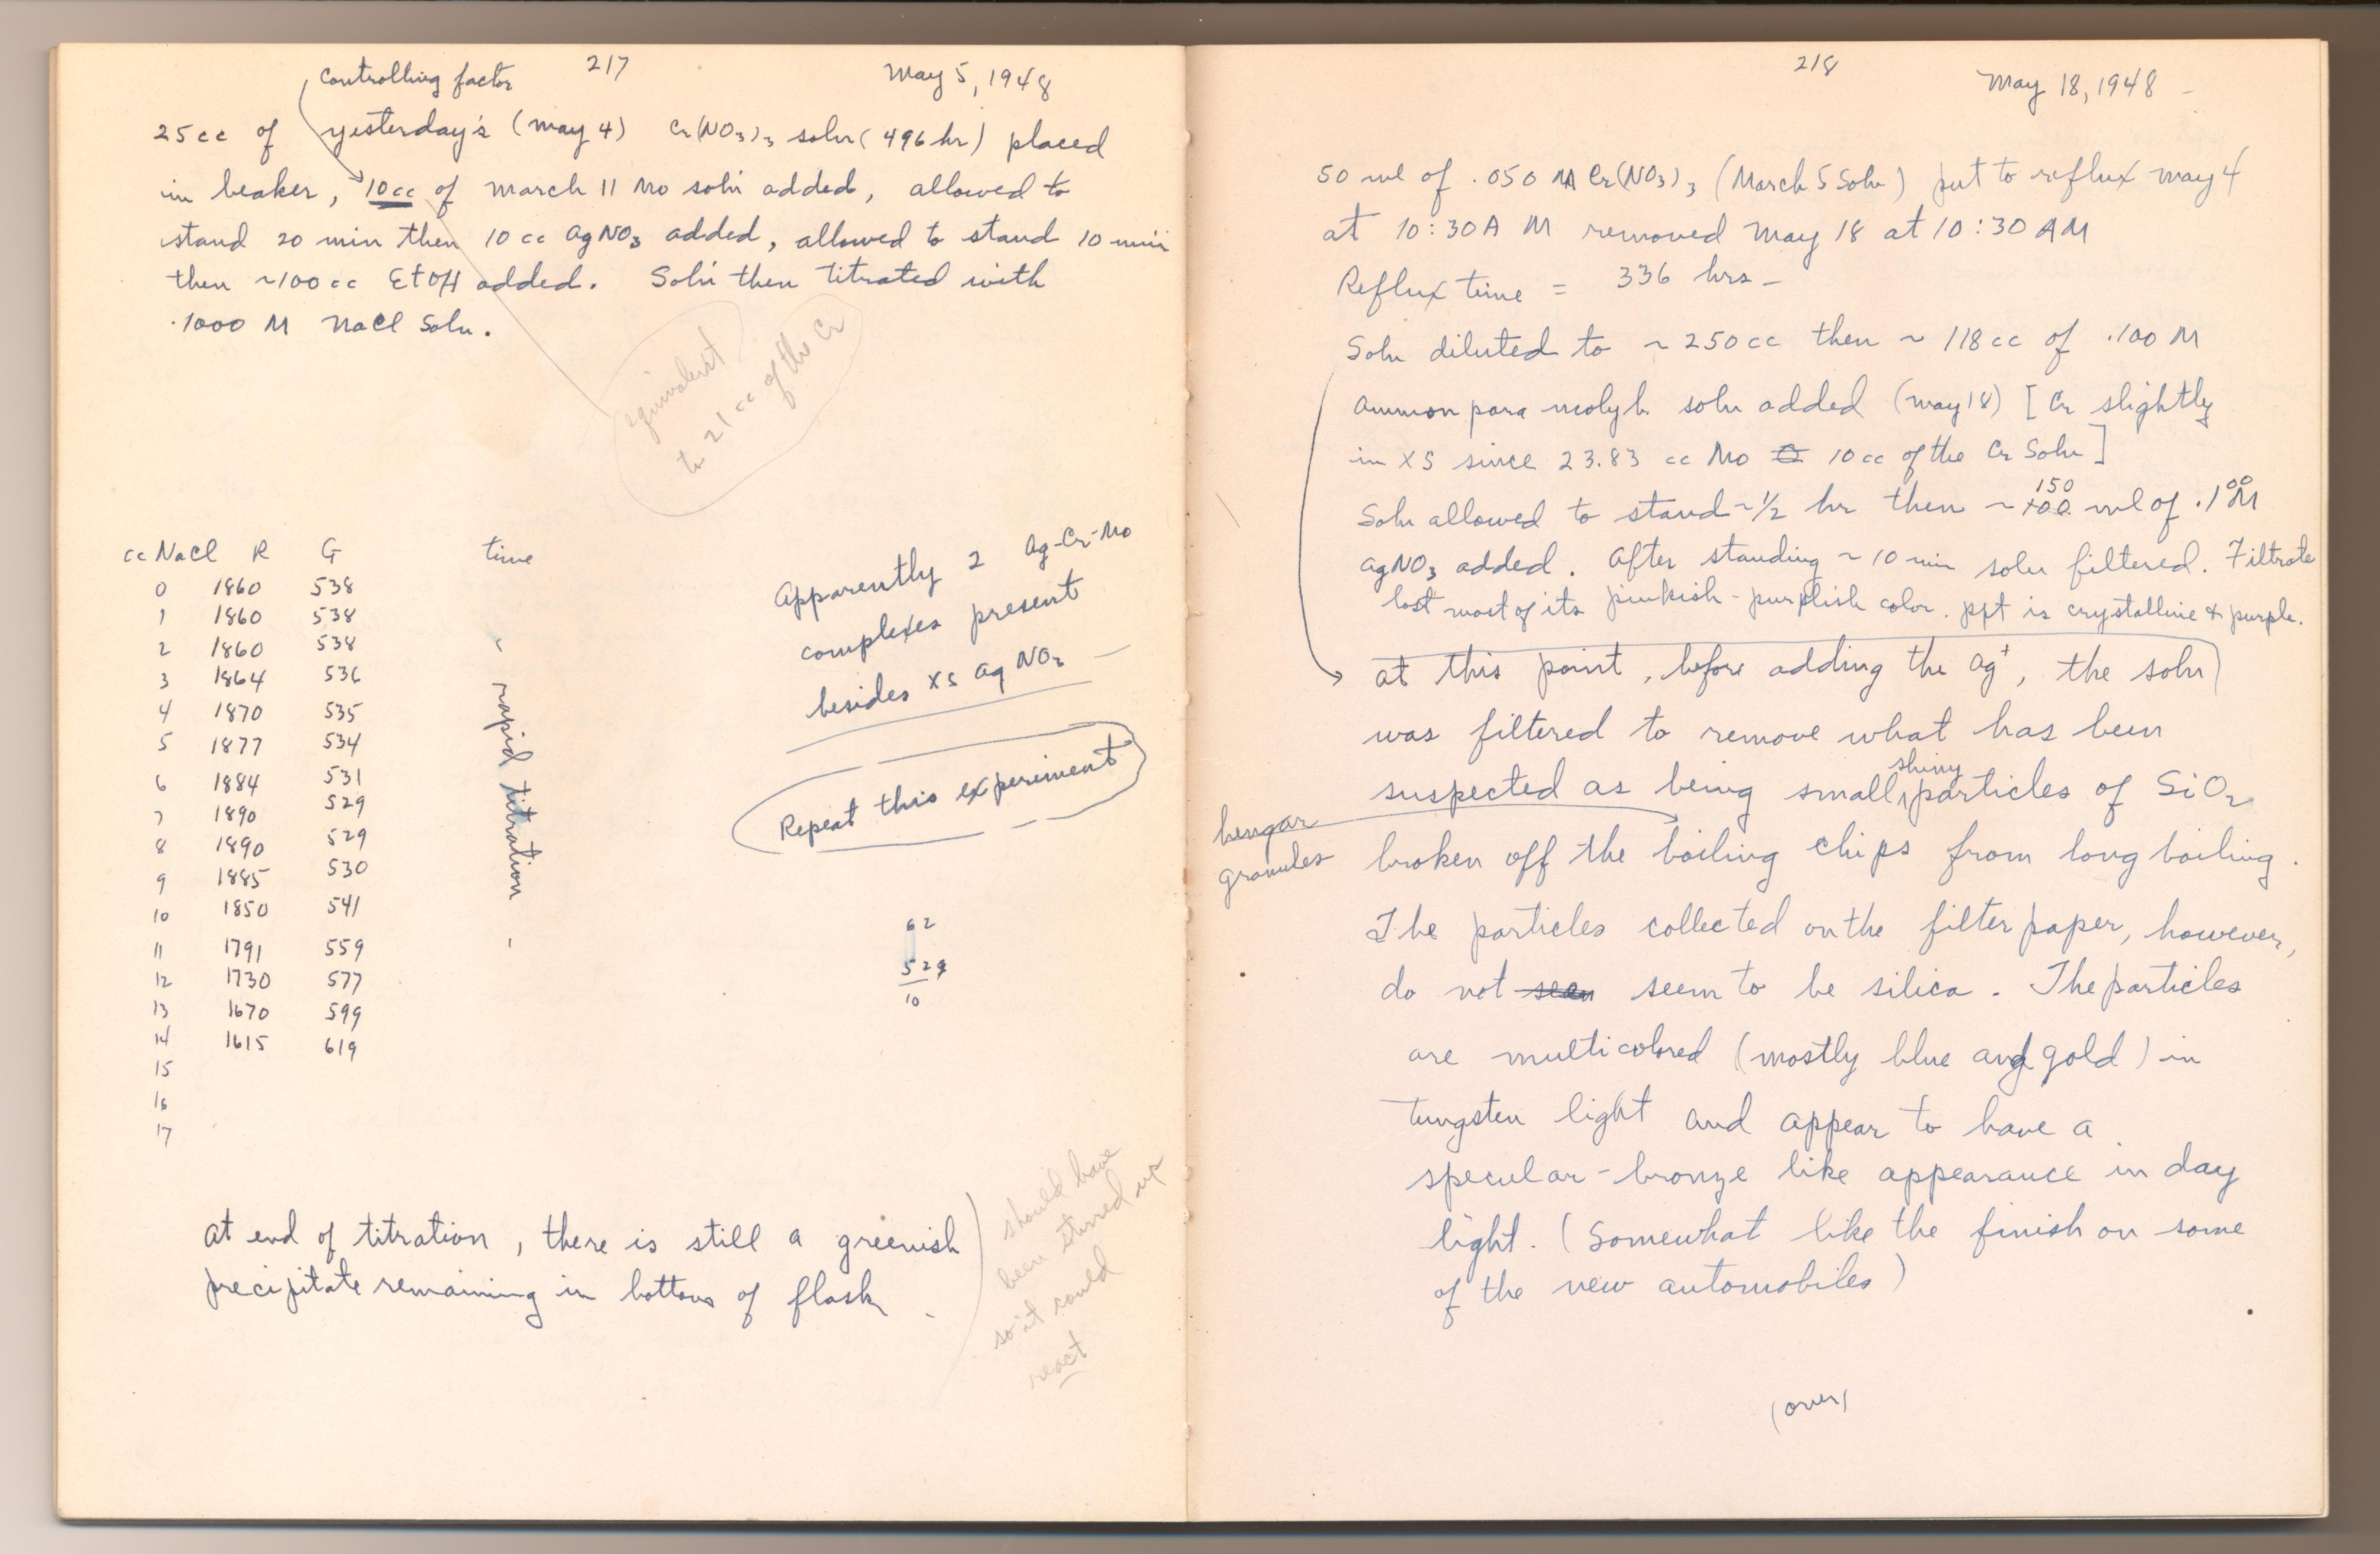 217
May 5, 1948
Controlling factor
25cc of yesterday's (May 4) Cr(NO3)3 soln (496 hr) placed
in beaker, 10cc of March 11 Mo soln added, allowed to
stand 20 min then 10 cc AgNO3 added, allowed to stand 10 min
then ~100cc EtOH added. Soln then titrated with
.1000 M NaCl Soln.
equivalent
to 21 cc of the Cr
cc NaCl R G time
0 1860 538
1 1860 538
2 1860 538
3 1864 536
4 1870 535
5 1877 534
6 1884 531
7 1890 529
8 1890 529
9 1885 530
10 1850 541
11 1791 559
12 1730 577
13 1670 599
14 1615 619
15
16
17
rapid titration
Apparently 2 Ag-Cr-Mo
complexes present
besides XS AgNO3
Repeat this experiment
62
529
10
At end of titration, there is still a greenish
precipitate remaining in bottom of flask.
should have
been stirred up
so it could
react
218
May 18, 1948
50 ml of .050 M Cr(NO3)3 (March 5 Soln) put to reflux May 4
at 10:30 A M removed May 18 at 10:30 AM
Reflux time = 336 hrs -
Soln diluted to ~ 250cc then ~ 118cc of .100 M
Ammon para molyb. soln added (May 18) [Cr slightly
in XS since 23.83 cc Mo ≏ 10cc of the Cr Soln]
Soln allowed to stand ~ 1/2 hr then ~ 150 ml of .100 M
AgNO3 added. After standing ~ 10 min soln filtered. Filtrate
lost most of its pinkish-purplish color. ppt is crystalline & purple.
at this point, before adding the Ag+, the soln
was filtered to remove what has been
suspected as being small shiny particles of SiO2
hengar
granules
broken off the boiling chips from long boiling.
The particles collected on the filter paper, however,
do not seem to be silica. The particles
are multicolored (mostly blue and gold) in
tungsten light and appear to have a
specular-bronze like appearance in day
light. (Somewhat like the finish on some
of the new automobiles)
(over)